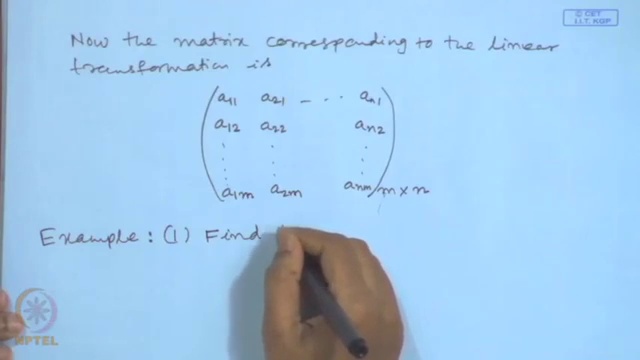 © CET
I.I.T. KGP
Now the matrix corresponding to the linear
transformation is
a11 a21 - - - an1
a12 a22 an2
⋮ ⋮ ⋮
a1m a2m anm m×n
Example: (1) Find
NPTEL